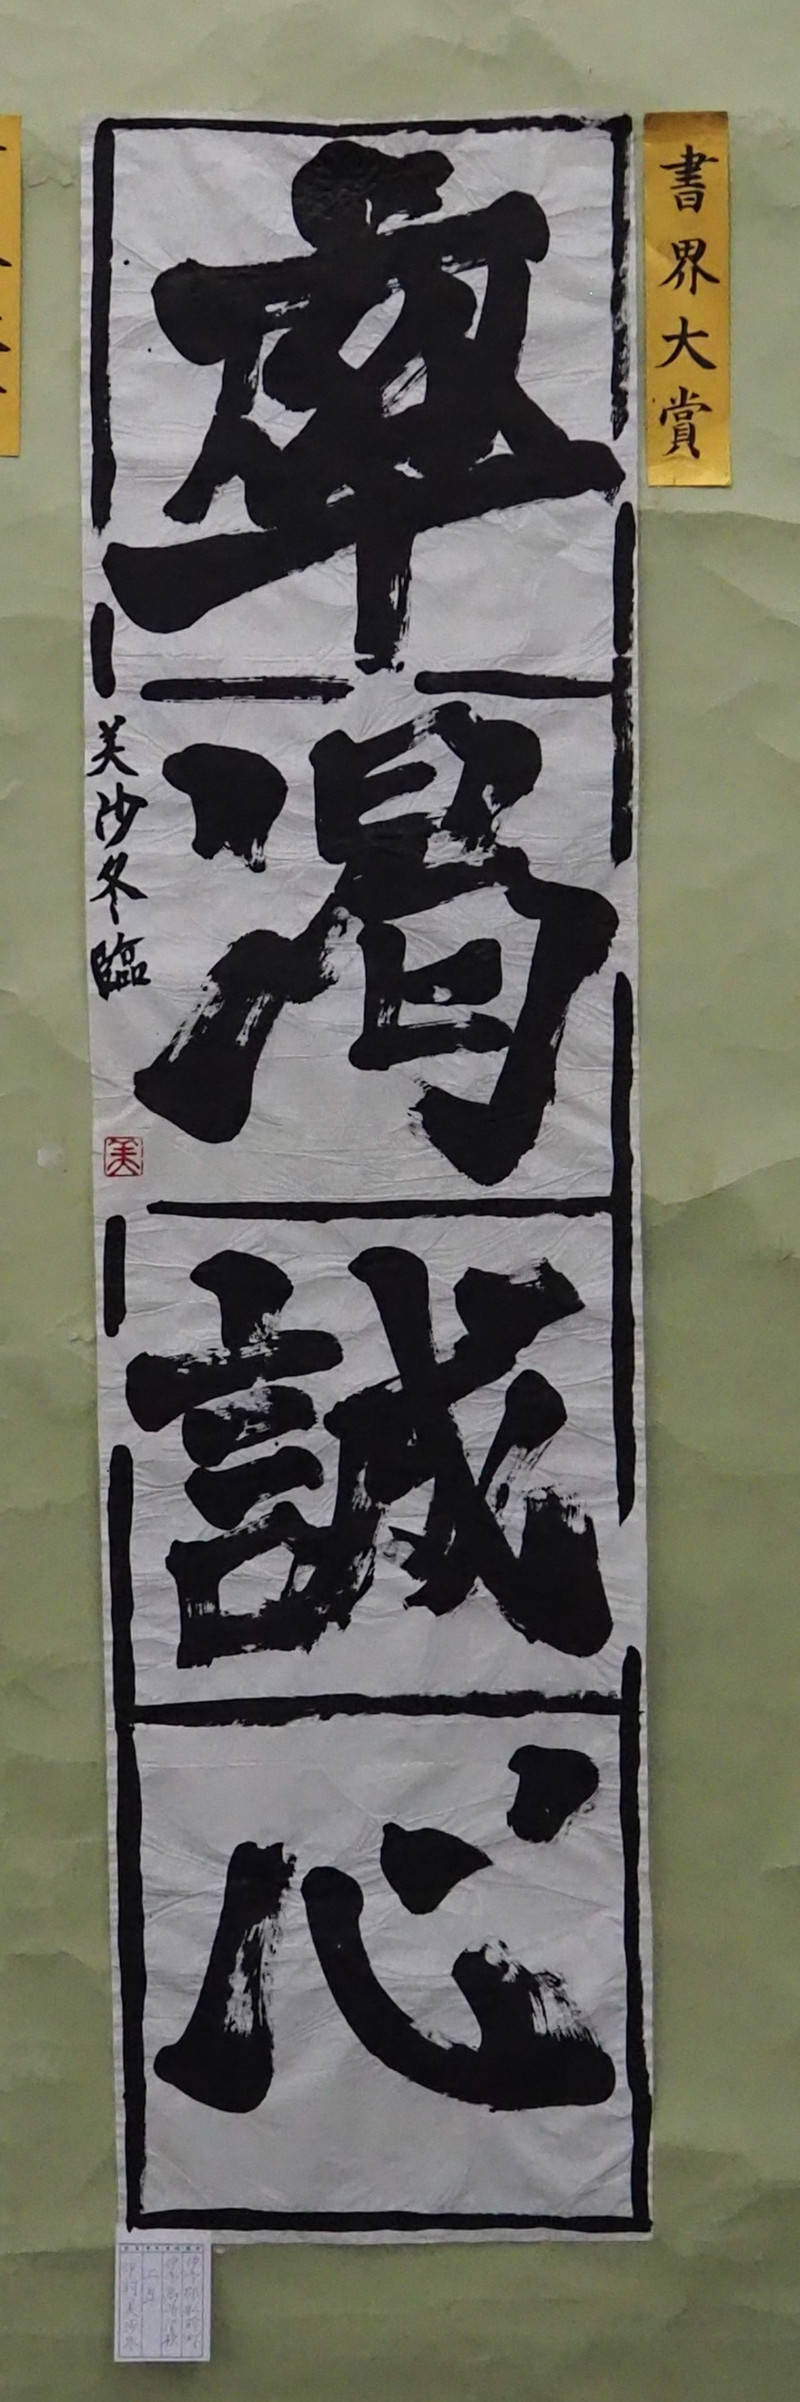 書界大賞
率渇誠心
美沙冬臨
美